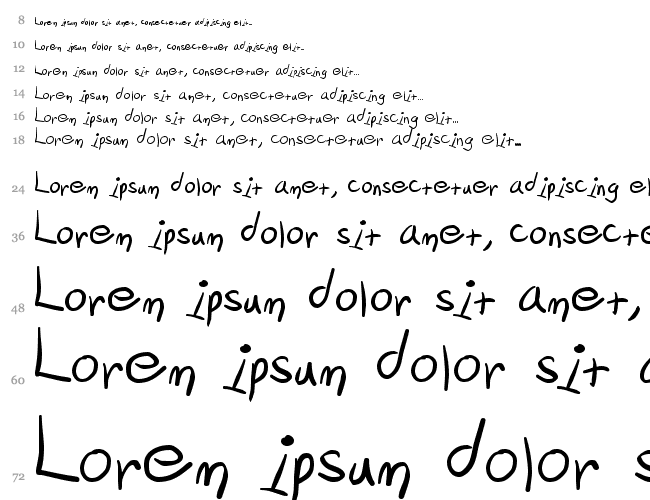 8 Lorem ipsum dolor sit amet, consectetuer adipiscing elit...
10 Lorem ipsum dolor sit amet, consectetuer adipiscing elit...
12 Lorem ipsum dolor sit amet, consectetuer adipiscing elit...
14 Lorem ipsum dolor sit amet, consectetuer adipiscing elit...
16 Lorem ipsum dolor sit amet, consectetuer adipiscing elit...
18 Lorem ipsum dolor sit amet, consectetuer adipiscing elit...
24 Lorem ipsum dolor sit amet, consectetuer adipiscing el
36 Lorem ipsum dolor sit amet, consecte
48 Lorem ipsum dolor sit amet,
60 Lorem ipsum dolor sit a
72 Lorem ipsum dolor s